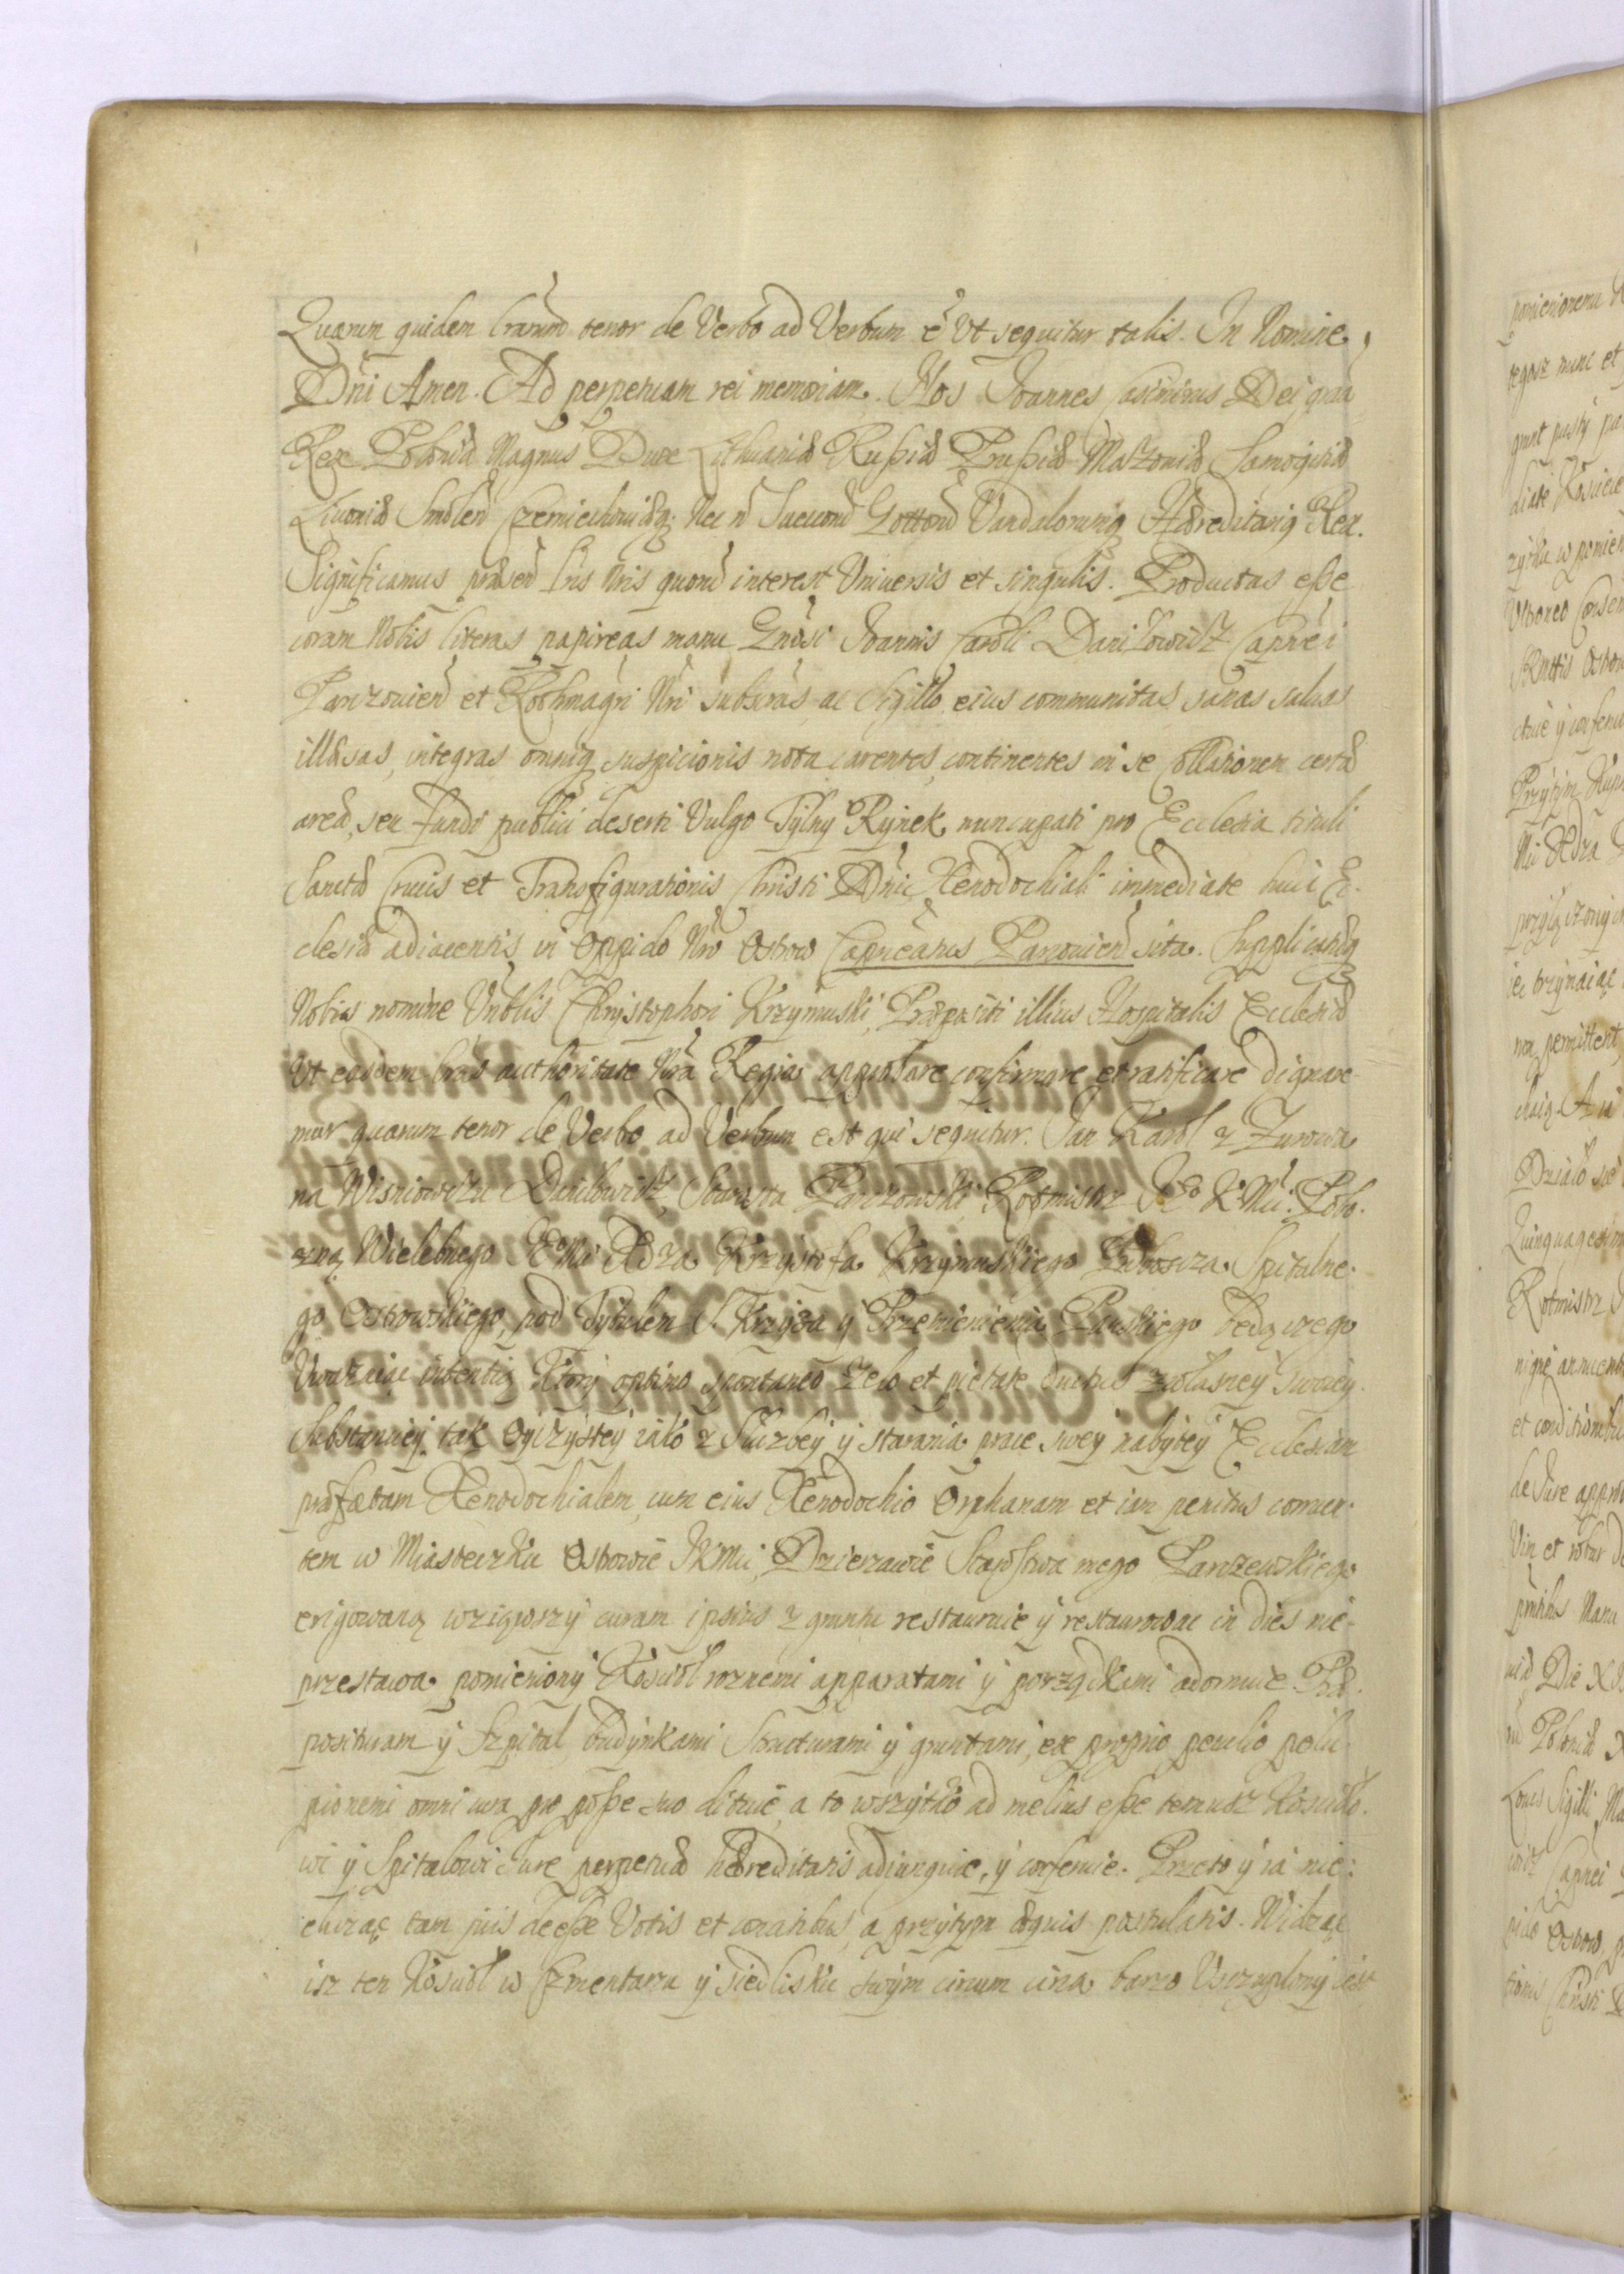 Quarum quidem lrarum tenor de Verbo ad Verbum e Ut sequitur talis. In Nomine
Dni Amen. Ad perpetuam rei memoriam. Nos Joannes Casimirus Dei gra
Rex Poloniæ Magnus Dux Lithuaniæ Rußiæ Prußiæ Mazoviæ Samogitiæ
Livoniæ Smolen Czerniechoviæq; Nec n Suecorũ Gottorũ Vandalorumq Hæreditariq Rex.
Significamus præsen lris nris quorũ interest Universis et singulis. Productas eße
coram Nobis literas papireas manu Gnosi Joannis Caroli Daniłowicz Capnei
Parczovien et Rothmagri Nri subscras ac Sigillo eius communitas sanas salvas
illæsas, integras omniq suspicionis nota carentes, continentes in se Collationem certæ
areæ, seu fundi publici deserti Vulgo Tylny Rynek nuncupati pro Ecclesia tituli
Sanctæ Crucis et Transfigurationis Christi Dni Xenodochiali immediate huic Ec-
clesiæ adiacentis in Oppido Nro Ostrow Capneatus Parcovien sita. Supplicatũq
Nobis nomine Vnblis Chrystophori Krzymuski, Præpositi illius Hospitalis Ecclesiæ
Ut easdem lras authoritate Nra Regia approbare confirmare et ratificare dignare-
mur quarum tenor de Verbo ad Verbum est qui sequitur. Jan Karol z Zurowa
na Wisniowczu Daniłowicz, Starosta Parczowski Rotmistrz JEo K. Mci: Pobo-
zną Wielebnego EoMci Xdza Krzysztofa Krzymuskiego Proboscza Spitalne-
go Ostrowskiego, pod Tytułem S. Krzyża y Przemienienia Panskiego będączego
Uwazaiąc intentią Ktory optimo spontaneo Zelo et pietate ductus zwłasney swoiey
Substanciey tak Oyczystey iako z Służbey y starania prace swey nabytey Ecclesiam
præfatam Xenodochialem cum eius Xenodochio Orphanam et iam penitus corruen-
tem w Miasteczku Ostrowie JKMci, Dzierzawie Starostwa mego Parczewskiego
erigowaną wziąwszy curam ipsius z gruntu restauruie y restaurowac in dies nie-
przestawa pomieniony Kościoł roznemi apparatami y porządkami adornuie Præ-
posituram y Szpital budynkami Structurami y gruntami, ex proprio peculio
omni cura pro poße suo dituie, a to wszytko ad melius eße temusz Kosciło-
wi y Spitalowi Jure perpetuæ hæreditatis adiunguie, y conferuie. Przeto y ia nie-
chcząc tam piis deeße Votis et conatibus, a przytym æquis postulatis. Widząc
isz ten Kościoł w Czmentarzu y siedlisku swym circum circa barzo Uszczuplony iest